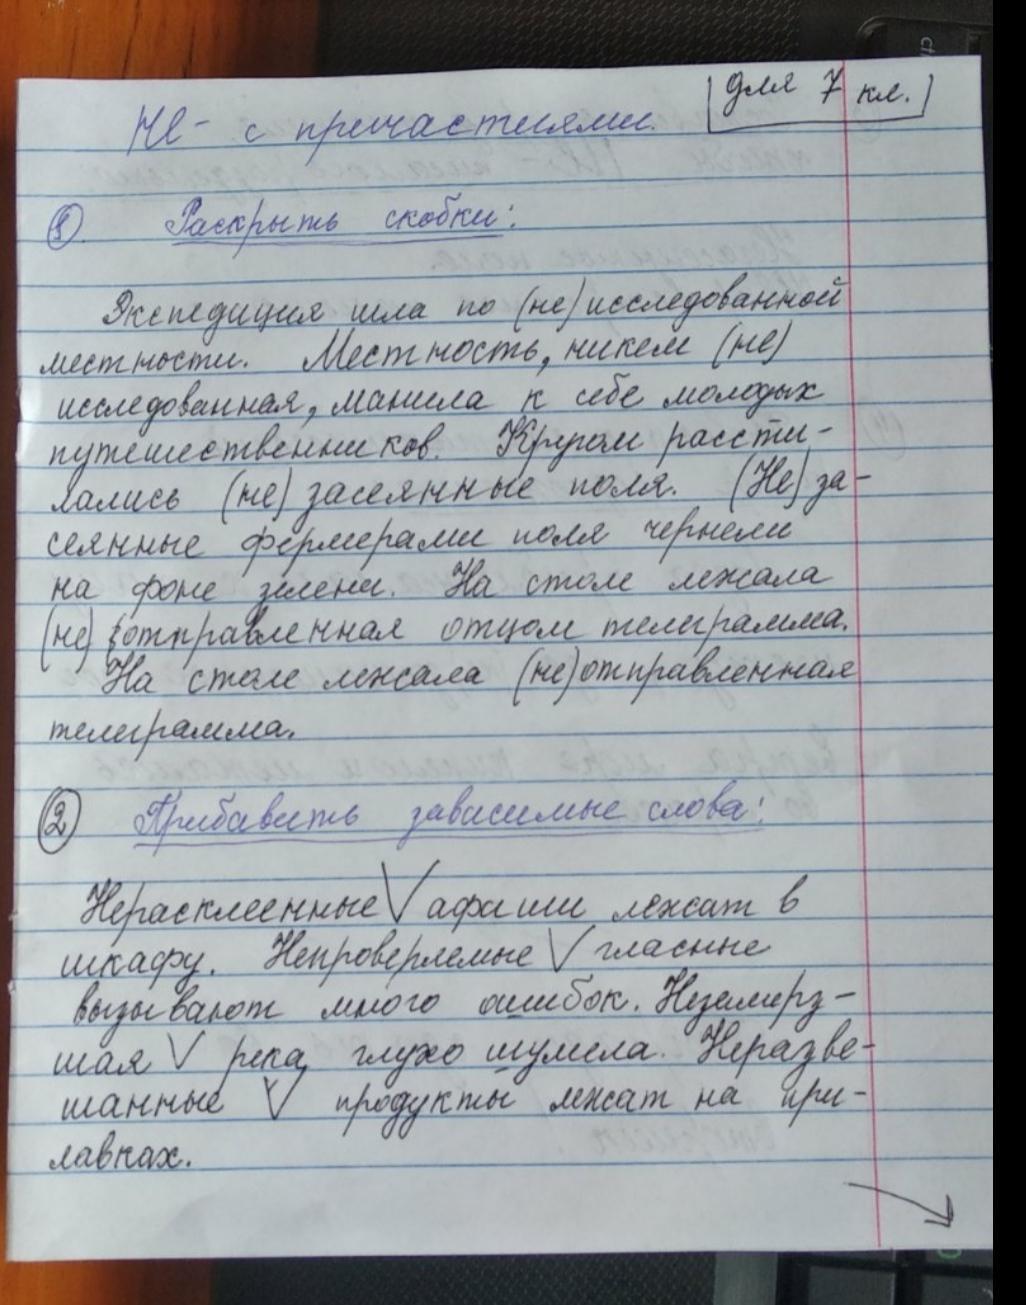 для 7 кл.
Не- с причастиями.
1 Раскрыть скобки:
Экспедиция шла по (не) исследованной
местности. Местность, никем (не)
исследованная, манила к себе молодых
путешественников. Кругом рассти-
лались (не) засеянные поля. (Не) за-
сеянные фермерами поля чернели
на фоне зелени. На столе лежала
(не) отправленная отцом телеграмма.
На столе лежала (не) отправленная
телеграмма.
2 Прибавить зависимые слова:
Нерасклеенные V афиши лежат в
шкафу. Непроверяемые V гласные
вызывают много ошибок. Незамерз-
шая V река глухо шумела. Неразве-
шанные V продукты лежат на при-
лавках.